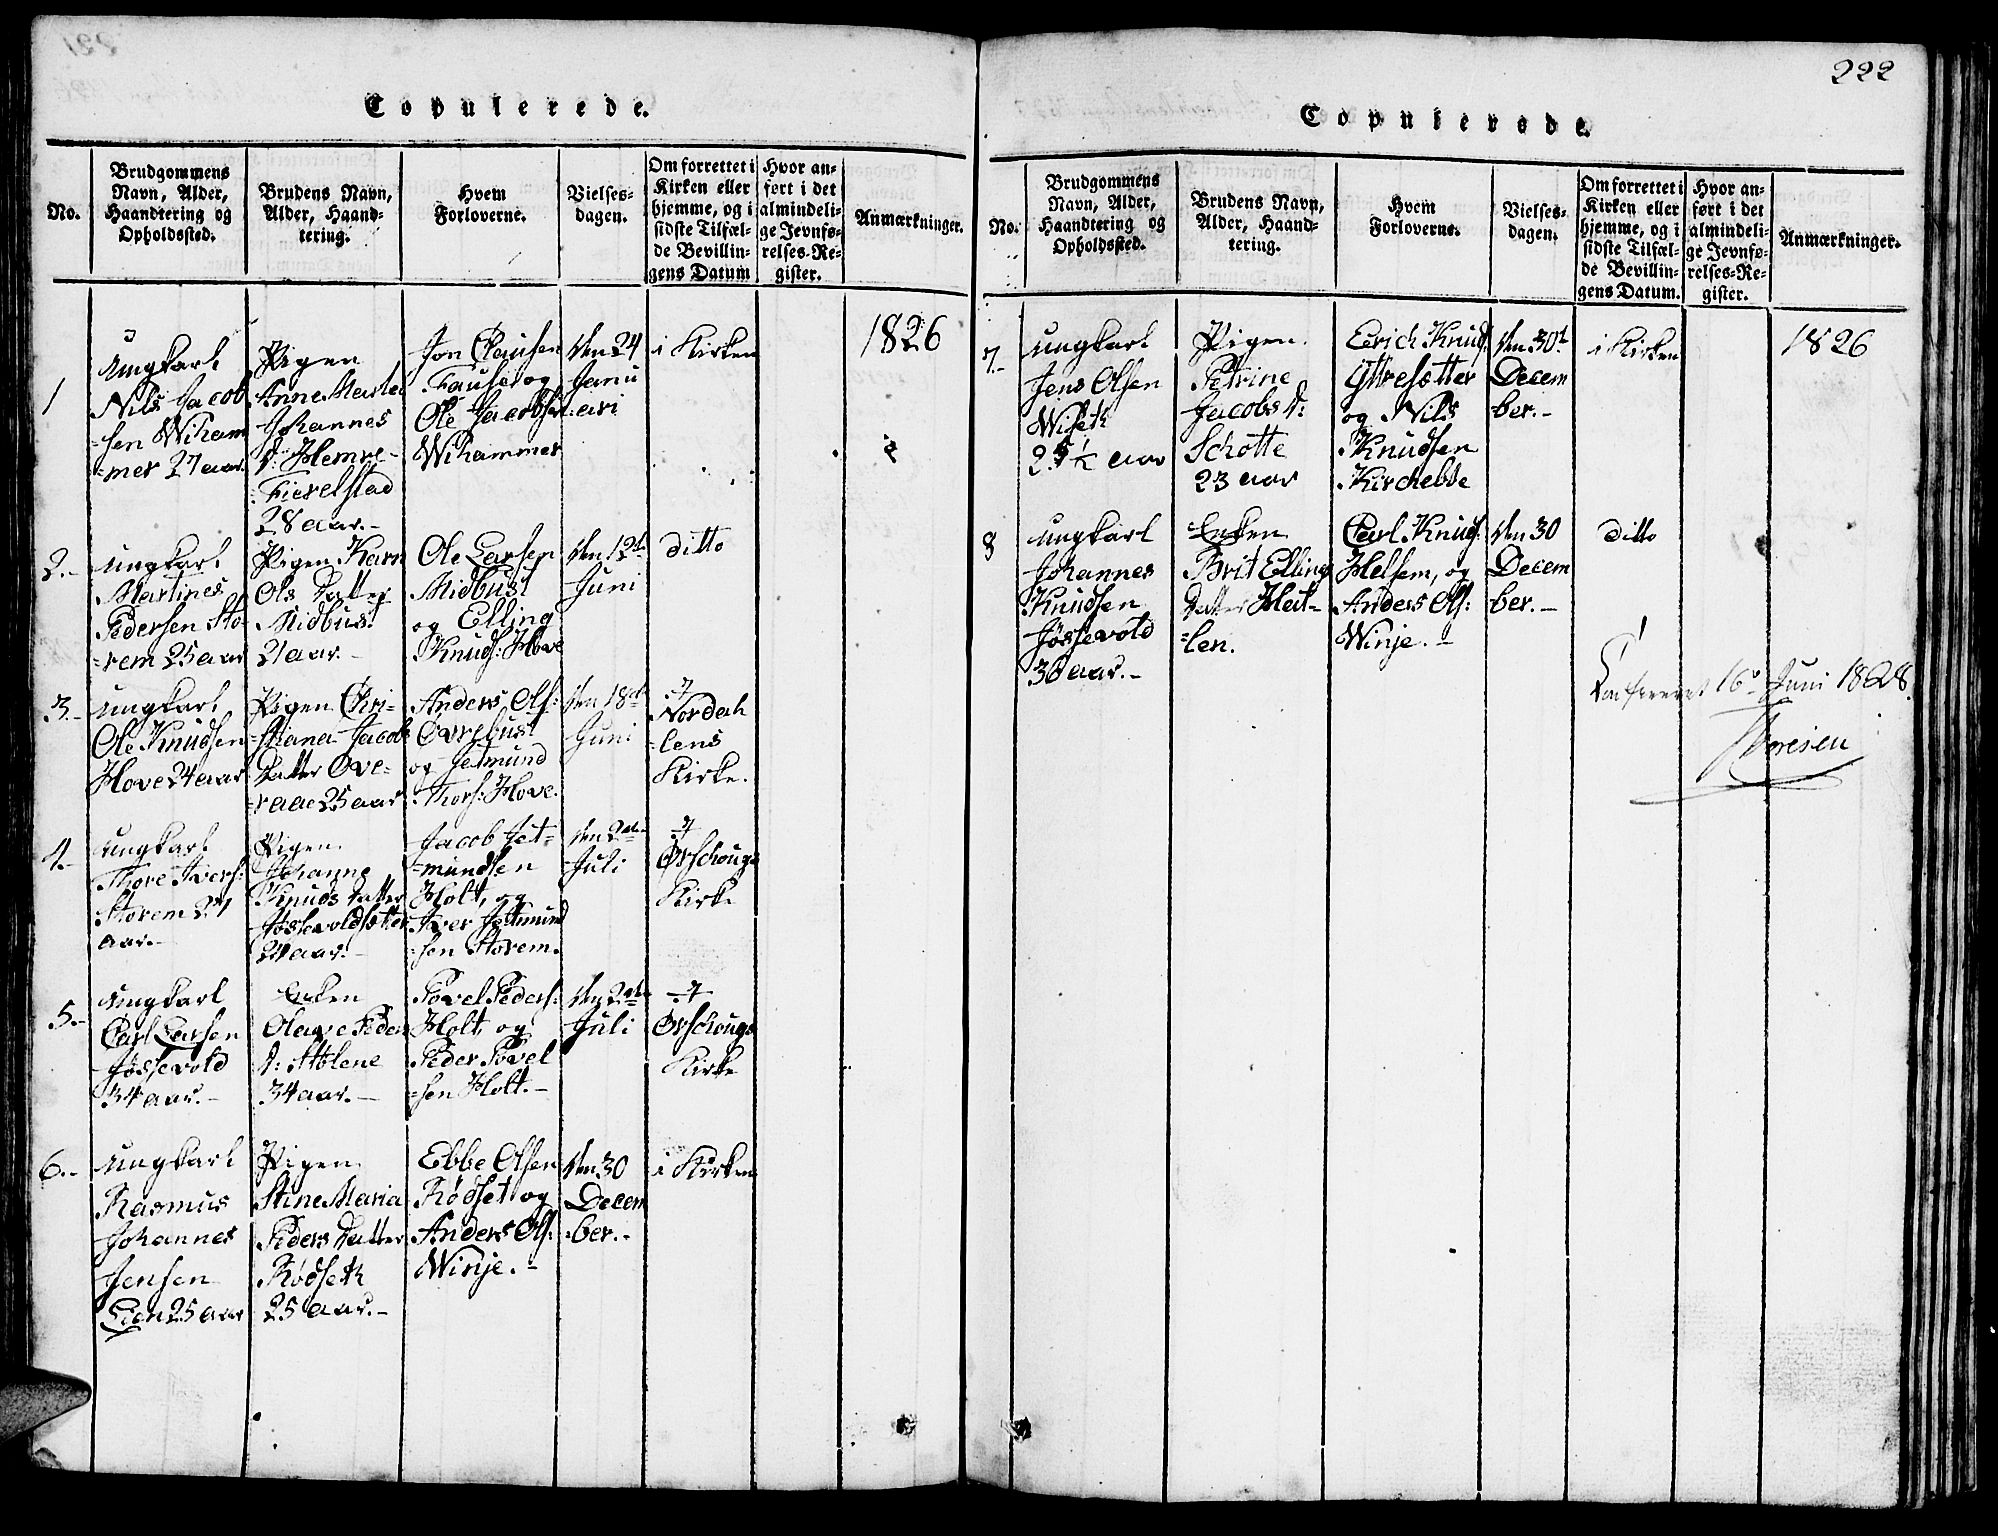 222
Copulerede.
No.
Brudgommens
Navn, Alder,
Haandtering og
Opholdssted.
Brudens Navn,
Alder, Haand-
tering.
Hvem
Forloverne.
Vielses-
dagen.
Om forrettet i
Kirken eller
hjemme, og i
sidste Tilfæl-
de Bevillin-
gens Datum
Hvor an-
ført i det
almindeli-
ge Jevnfø-
relses-Re-
gister.
Anmærkninger.
1826
1
Ungkarl
Nils Jacob
=sen Wiham
=mer 27 aar.
Pigen
Anne Marta
Johannes
D: Hemre-
Fierelstad
28 aar.-
Jon Clausen
Fause og
Ole Jacobsen
Wihammer
den 24
Janu
:ari
i Kirken
2.-
Ungkarl
Martines
Pedersen Sto-
=rem 25 aar
Pigen Karn
Ols Datter
Midbust
21 aar.-
Ole Larsen
Midbust
og Elling
Knuds: Hove
den 12te
Juni
ditto
3.-
Ungkarl
Ole Knudsen
Hove 24 aar
Pigen Chri-
=stiana Jacobs
Datter Øve-
=raae 25 aar
Anders Ols:
Øvrebust
og Jetmund
Thors: Hove.
den 18de
Juni
I
Nordah
=lens
Kirke.
4.-
Ungkarl
Thore Ivers:
Storem 24
aar.-
Pigen
Johanne
Knuds Datter
Jøssevoldsætter
24 aar.-
Jacob Jet-
=mundsen
Holt, og
Iver Jetmund
=sen Storem.
den 2den
Juli
I
Ørschougs
Kirke
5.-
Ungkarl
Carl Larsen
Jøssevold
34 aar.-
Enken
Olave Peder
D: Stølene
34 aar.-
Povel Peders:
Holt, og
Peder Povel
=sen Holt.-
den 2den
Juli
I
Ørschougs
Kirke
6.-
Ungkarl
Rasmus
Johannes
Jensen
Lien 25 aar
Pigen
Stine Maria
Peders Datter
Rødseth
25 aar.-
Ebbe Olsen
Rødset og
Anders Ols:
Winje.-
den 30
Decem
:ber.-
i Kirken
Copulerede.
No.
Brudgommens
Navn, Alder,
Haandtering og
Opholdssted.
Brudens Navn,
Alder, Haand-
tering.
Hvem
Forloverne.
Vielses-
dagen.
Om forrettet i
Kirken eller
hjemme, og i
sidste Tilfæl-
de Bevillin-
gens Datum.
Hvor an-
ført i det
almindeli-
ge Jevnfø-
relses-Re-
gister.
Anmærkninger.
1826
7.-
Ungkarl
Jens Olsen
Wiseth
25½ aar
Pigen
Petrine
Jacobs D:
Schotte
23 aar
Eerich Knud:
Yttresætter
og Nils
Knudsen
Kirchebøe
den 30t
Decem
ber.-
i Kirken
8
Ungkarl
Johannes
Knudsen
Jøssevold
36 aar.-
Enken
Brit Elling
Datter Hat-
=len.
Carl Knud:
Helsem, og
Anders Ols:
Winje.-
den 30
Decem
ber.-
ditto
Confereret 16 Juni 1828.
Thoresen